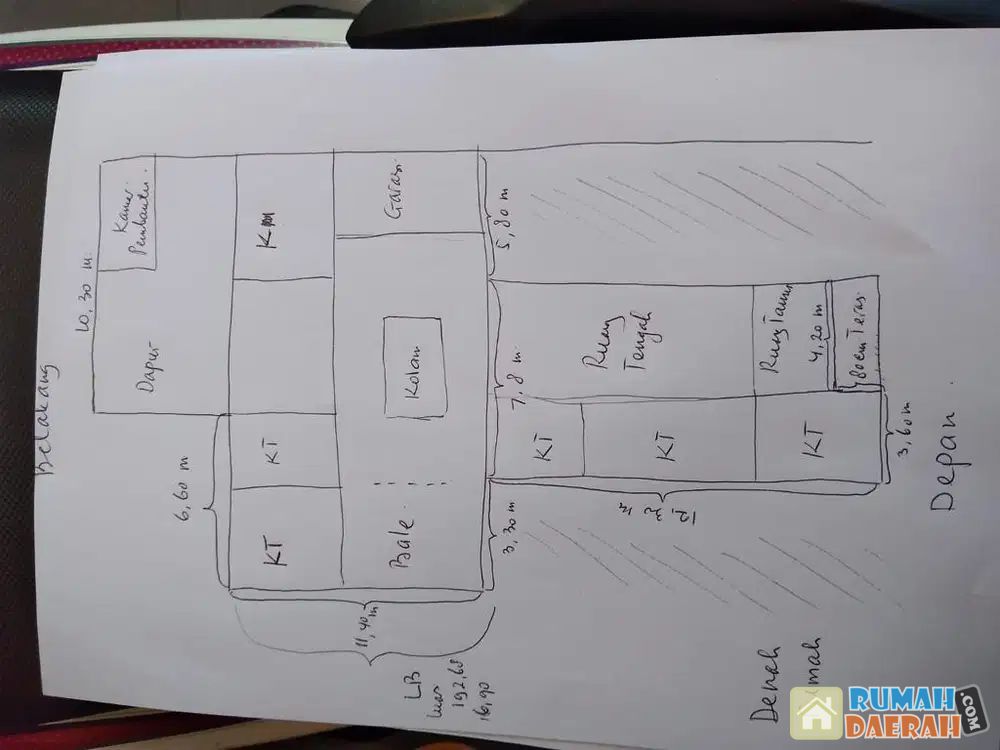 Belakang
10,30 m
Kamar
Pembantu
Dapur
6,60 m
KT
KT
KM
11,40 m
Bale
Kolam
Garasi
LB
luas
192,68
16,90
3,30 m
7,8 m
5,80 m
KT
Ruang
Tengah
KT
Ruang Tamu
4,20 m
80cm Teras
KT
3,60 m
Denah
umah
Depan
RUMAH
DAERAH
.COM